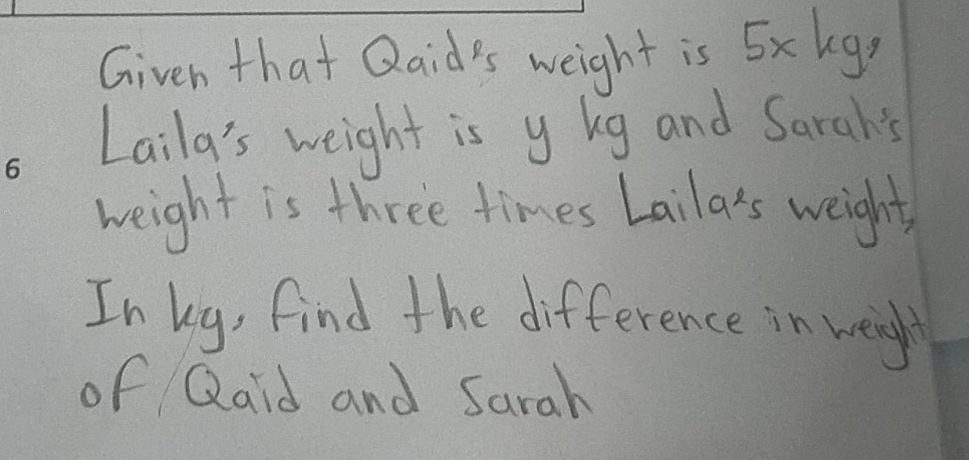 Given that Qaid's weight is 5x kg,
Laila's weight is y kg and Sarah's
6
weight is three times Laila's weight,
In kg, find the difference in weight
of Qaid and Sarah